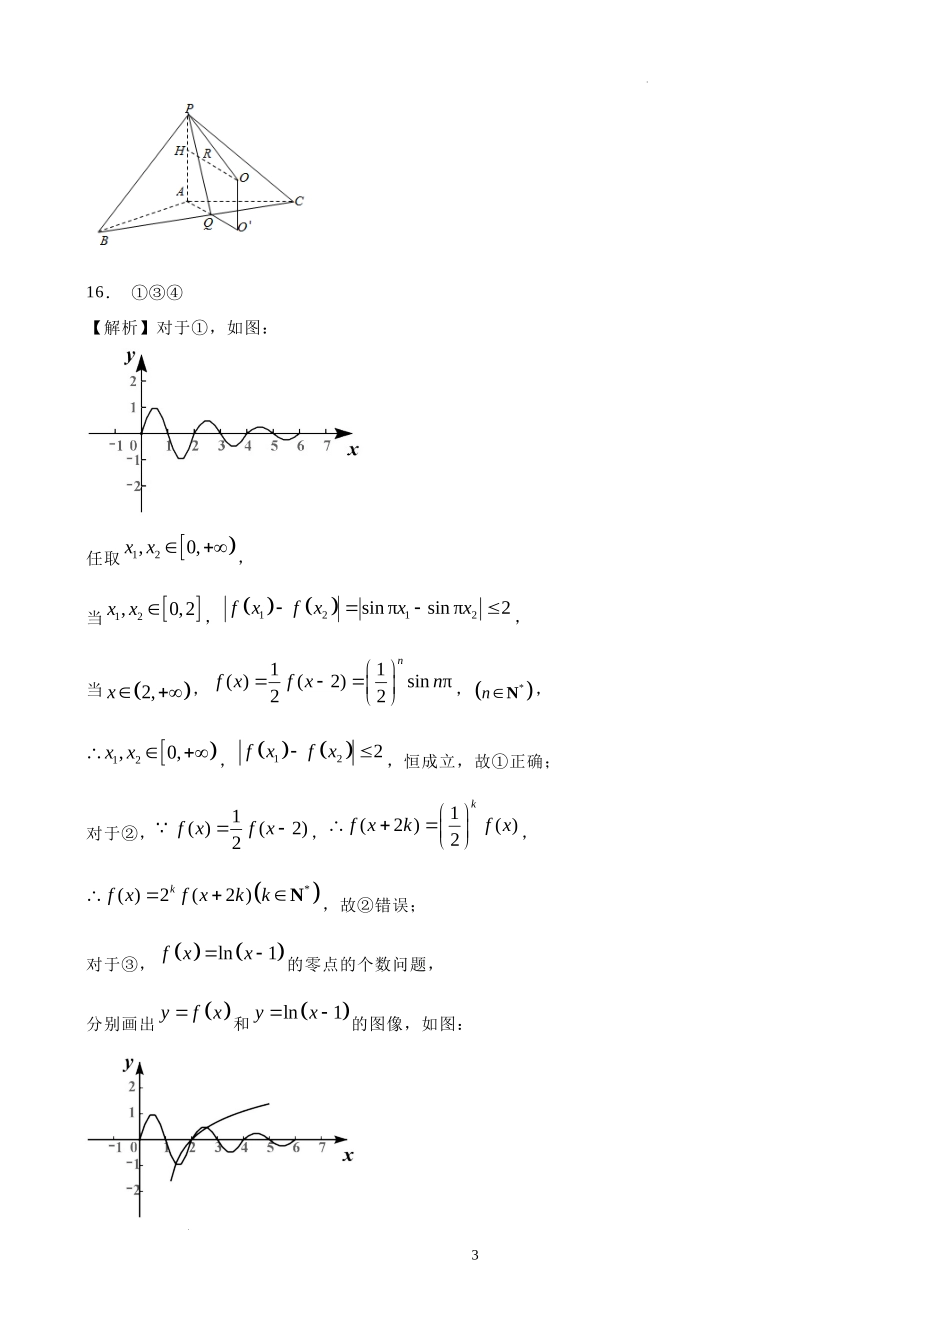 P
H R
O
A
C
Q O'
B
16． ①③④
【解析】对于①，如图：
y
2
1
-1 0 1 2 3 4 5 6 7
x
-1
-2
任取 x₁, x₂ ∈ [0, +∞)，
当 x₁, x₂ ∈ [0, 2]，|f(x₁) - f(x₂)| = |sin πx₁ - sin πx₂| ≤ 2，
当 x ∈ (2, +∞)，f(x) = 1/2 f(x - 2) = (1/2)ⁿ sin nπ，(n ∈ N*)，
∴ x₁, x₂ ∈ [0, +∞)，|f(x₁) - f(x₂)| ≤ 2，恒成立，故①正确；
对于②，∵ f(x) = 1/2 f(x - 2)，∴ f(x + 2k) = (1/2)ᵏ f(x)，
∴ f(x) = 2ᵏ f(x + 2k)(k ∈ N*)，故②错误；
对于③，f(x) = ln(x - 1) 的零点的个数问题，
分别画出 y = f(x) 和 y = ln(x - 1) 的图像，如图：
y
2
1
-1 0 1 2 3 4 5 6 7
x
-1
-2
3